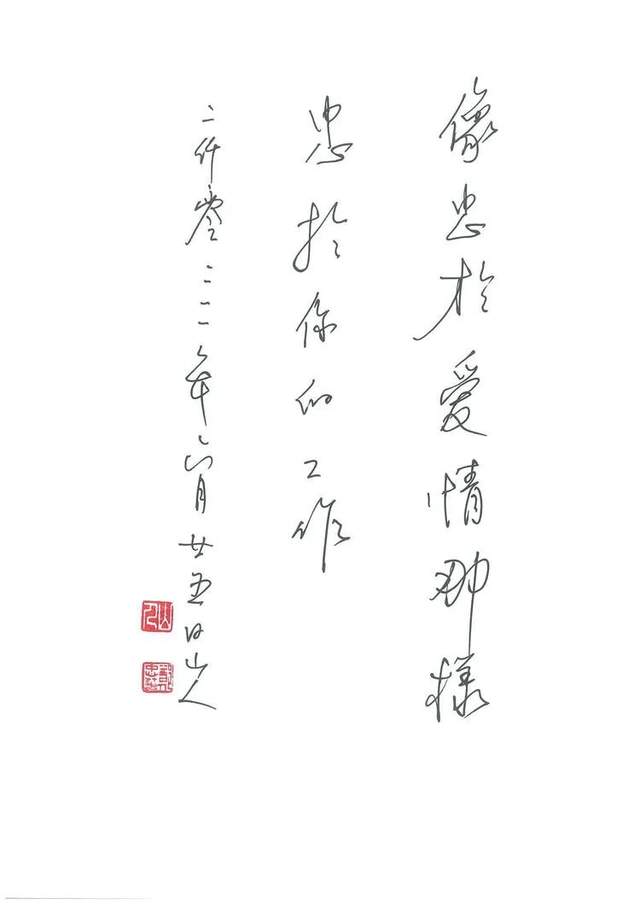 像忠於愛情那樣
忠於你的工作
二仟零二二年六月廿五日山人
山人